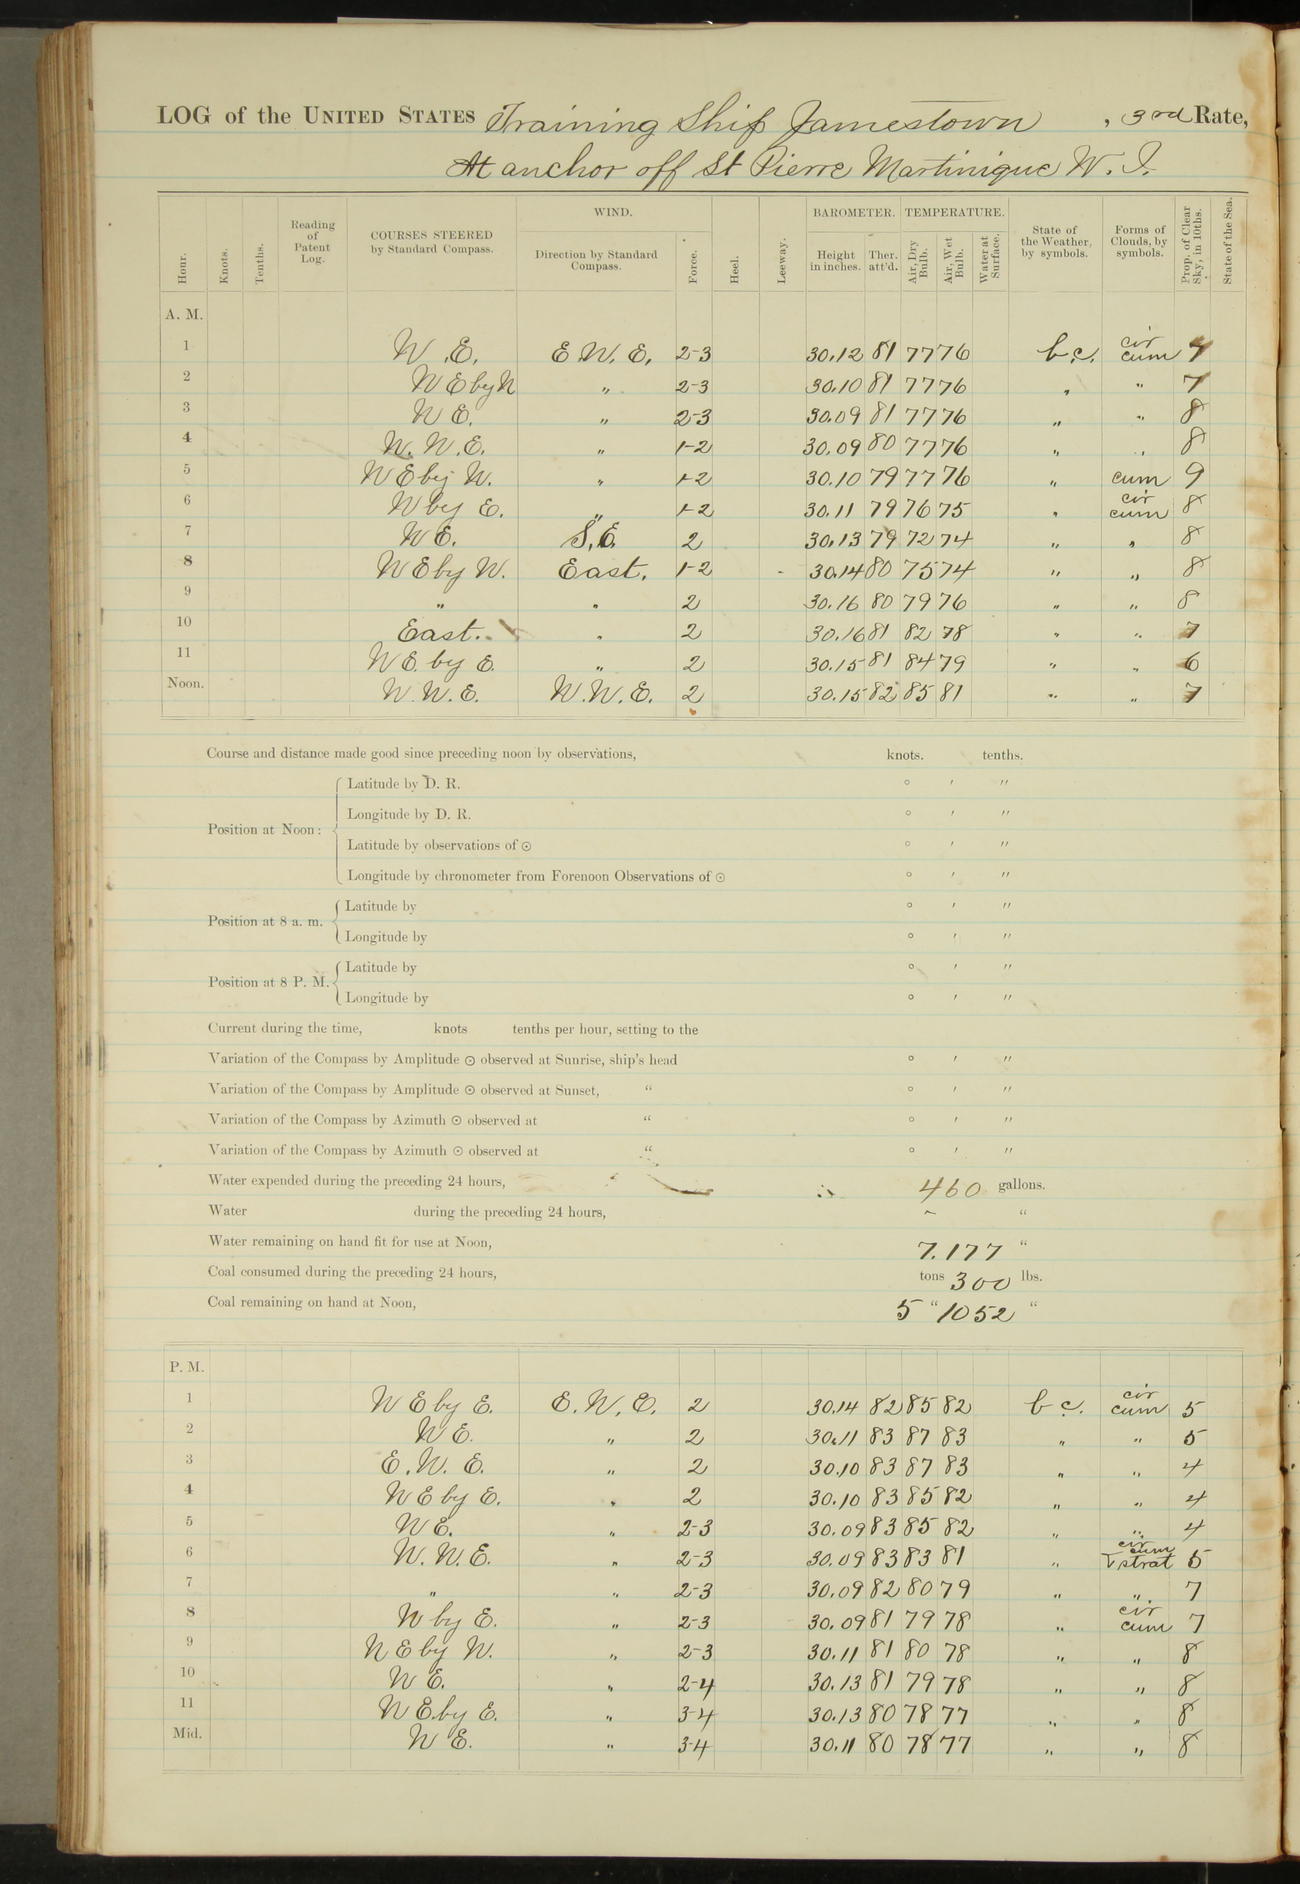 LOG of the UNITED STATES Training Ship Jamestown , 3rd Rate,
At anchor off St Pierre Martinique W. I.
Hour. Knots. Tenths. Reading of Patent Log. COURSES STEERED by Standard Compass. WIND. Direction by Standard Compass. Force. Heel. Leeway. BAROMETER. Height in inches. Ther. att'd. TEMPERATURE. Air, Dry Bulb. Air, Wet Bulb. Water at Surface. State of the Weather, by symbols. Forms of Clouds, by symbols. Prop. of Clear Sky, in 10ths. State of the Sea.
A. M.
1 N. E. E. N. E. 2-3 30.12 81 77 76 b.c. cir cum 7
2 N E by N " 2-3 30.10 81 77 76 " " 7
3 N E. " 2-3 30.09 81 77 76 " " 8
4 N. N. E. " 1-2 30.09 80 77 76 " " 8
5 N E by N. " 1-2 30.10 79 77 76 " cum 9
6 N by E. " 1-2 30.11 79 76 75 " cir cum 8
7 N E. S. E. 2 30.13 79 72 74 " " 8
8 N E by N. East. 1-2 30.14 80 75 74 " " 8
9 " " 2 30.16 80 79 76 " " 8
10 East. " 2 30.16 81 82 78 " " 7
11 N E. by E. " 2 30.15 81 84 79 " " 6
Noon. N. N. E. N. N. E. 2 30.15 82 85 81 " " 7
Course and distance made good since preceding noon by observations, knots. tenths.
Position at Noon: Latitude by D. R. ° ′ ″
Longitude by D. R. ° ′ ″
Latitude by observations of ⊙ ° ′ ″
Longitude by chronometer from Forenoon Observations of ⊙ ° ′ ″
Position at 8 a. m. Latitude by ° ′ ″
Longitude by ° ′ ″
Position at 8 P. M. Latitude by ° ′ ″
Longitude by ° ′ ″
Current during the time, knots tenths per hour, setting to the
Variation of the Compass by Amplitude ⊙ observed at Sunrise, ship's head ° ′ ″
Variation of the Compass by Amplitude ⊙ observed at Sunset, " ° ′ ″
Variation of the Compass by Azimuth ⊙ observed at " ° ′ ″
Variation of the Compass by Azimuth ⊙ observed at " ° ′ ″
Water expended during the preceding 24 hours, 460 gallons.
Water during the preceding 24 hours, ~ "
Water remaining on hand fit for use at Noon, 7.177 "
Coal consumed during the preceding 24 hours, tons 300 lbs.
Coal remaining on hand at Noon, 5 " 1052 "
P. M.
1 N E by E. E. N. E. 2 30.14 82 85 82 b c. cir cum 5
2 N E. " 2 30.11 83 87 83 " " 5
3 E. N. E. " 2 30.10 83 87 83 " " 4
4 N E by E. " 2 30.10 83 85 82 " " 4
5 N E. " 2-3 30.09 83 85 82 " " 4
6 N. N. E. " 2-3 30.09 83 83 81 " cir cum strat 5
7 " " 2-3 30.09 82 80 79 " " 7
8 N by E. " 2-3 30.09 81 79 78 " cir cum 7
9 N E by N. " 2-3 30.11 81 80 78 " " 8
10 N E. " 2-4 30.13 81 79 78 " " 8
11 N E. by E. " 3-4 30.13 80 78 77 " " 8
Mid. N E. " 3-4 30.11 80 78 77 " " 8